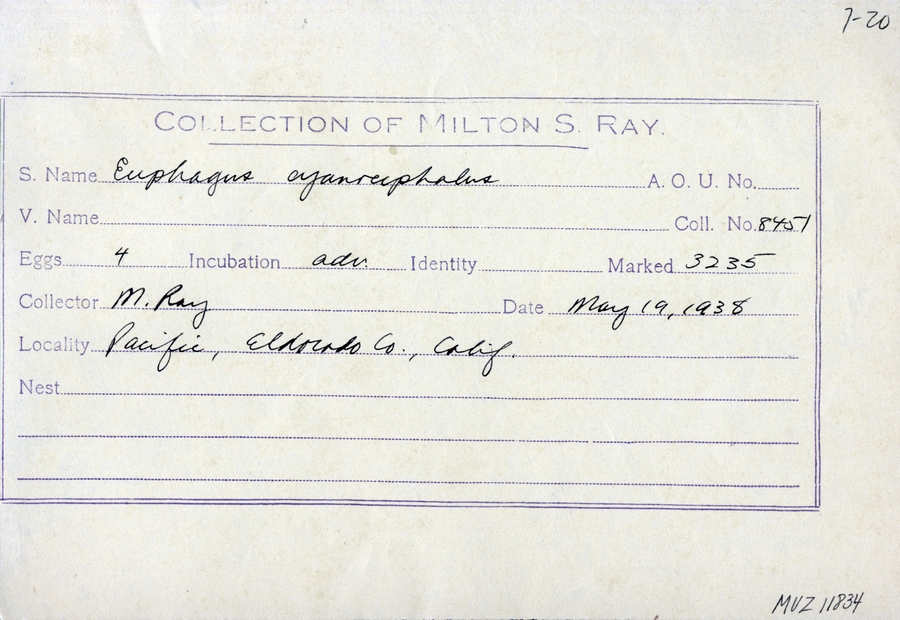 7-20
COLLECTION OF MILTON S. RAY.
S. Name Euphagus cyanocephalus A. O. U. No.
V. Name Coll. No. 8451
Eggs 4 Incubation adv. Identity Marked 3235
Collector M. Ray Date May 19, 1938
Locality Pacific, Eldorado Co., Calif.
Nest
MVZ 11834